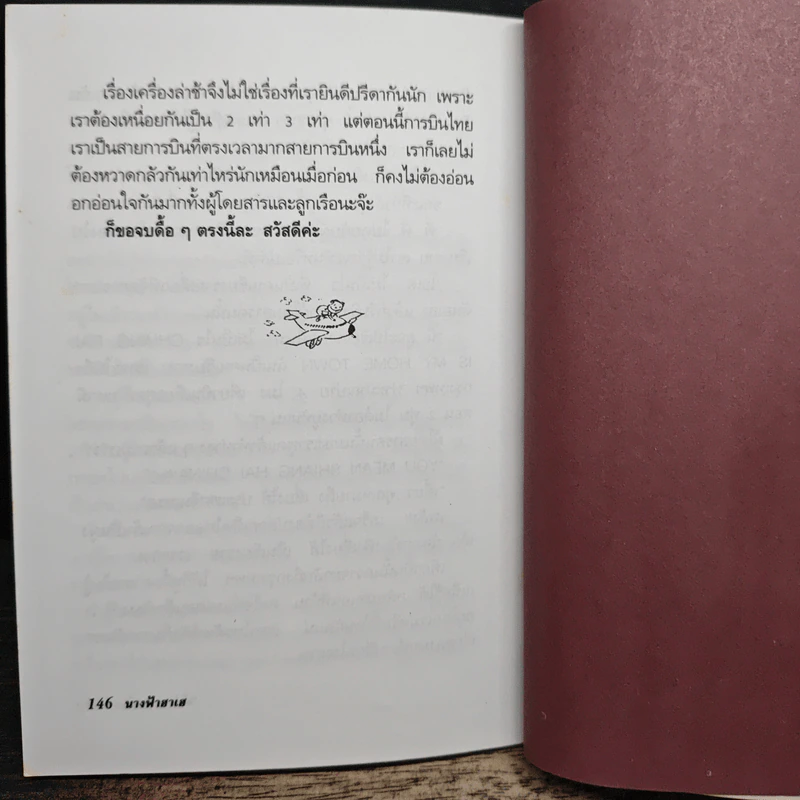 เรื่องเครื่องล่าช้าจึงไม่ใช่เรื่องที่เรายินดีปรีดากันนัก เพราะ
เราต้องเหนื่อยกันเป็น 2 เท่า 3 เท่า แต่ตอนนี้การบินไทย
เราเป็นสายการบินที่ตรงเวลามากสายการบินหนึ่ง เราก็เลยไม่
ต้องหวาดกลัวกันเท่าไหร่นักเหมือนเมื่อก่อน ก็คงไม่ต้องอ่อน
อกอ่อนใจกันมากทั้งผู้โดยสารและลูกเรือนะจ๊ะ
ก็ขอจบดื้อ ๆ ตรงนี้ละ สวัสดีค่ะ
146 นางฟ้าฮาเฮ